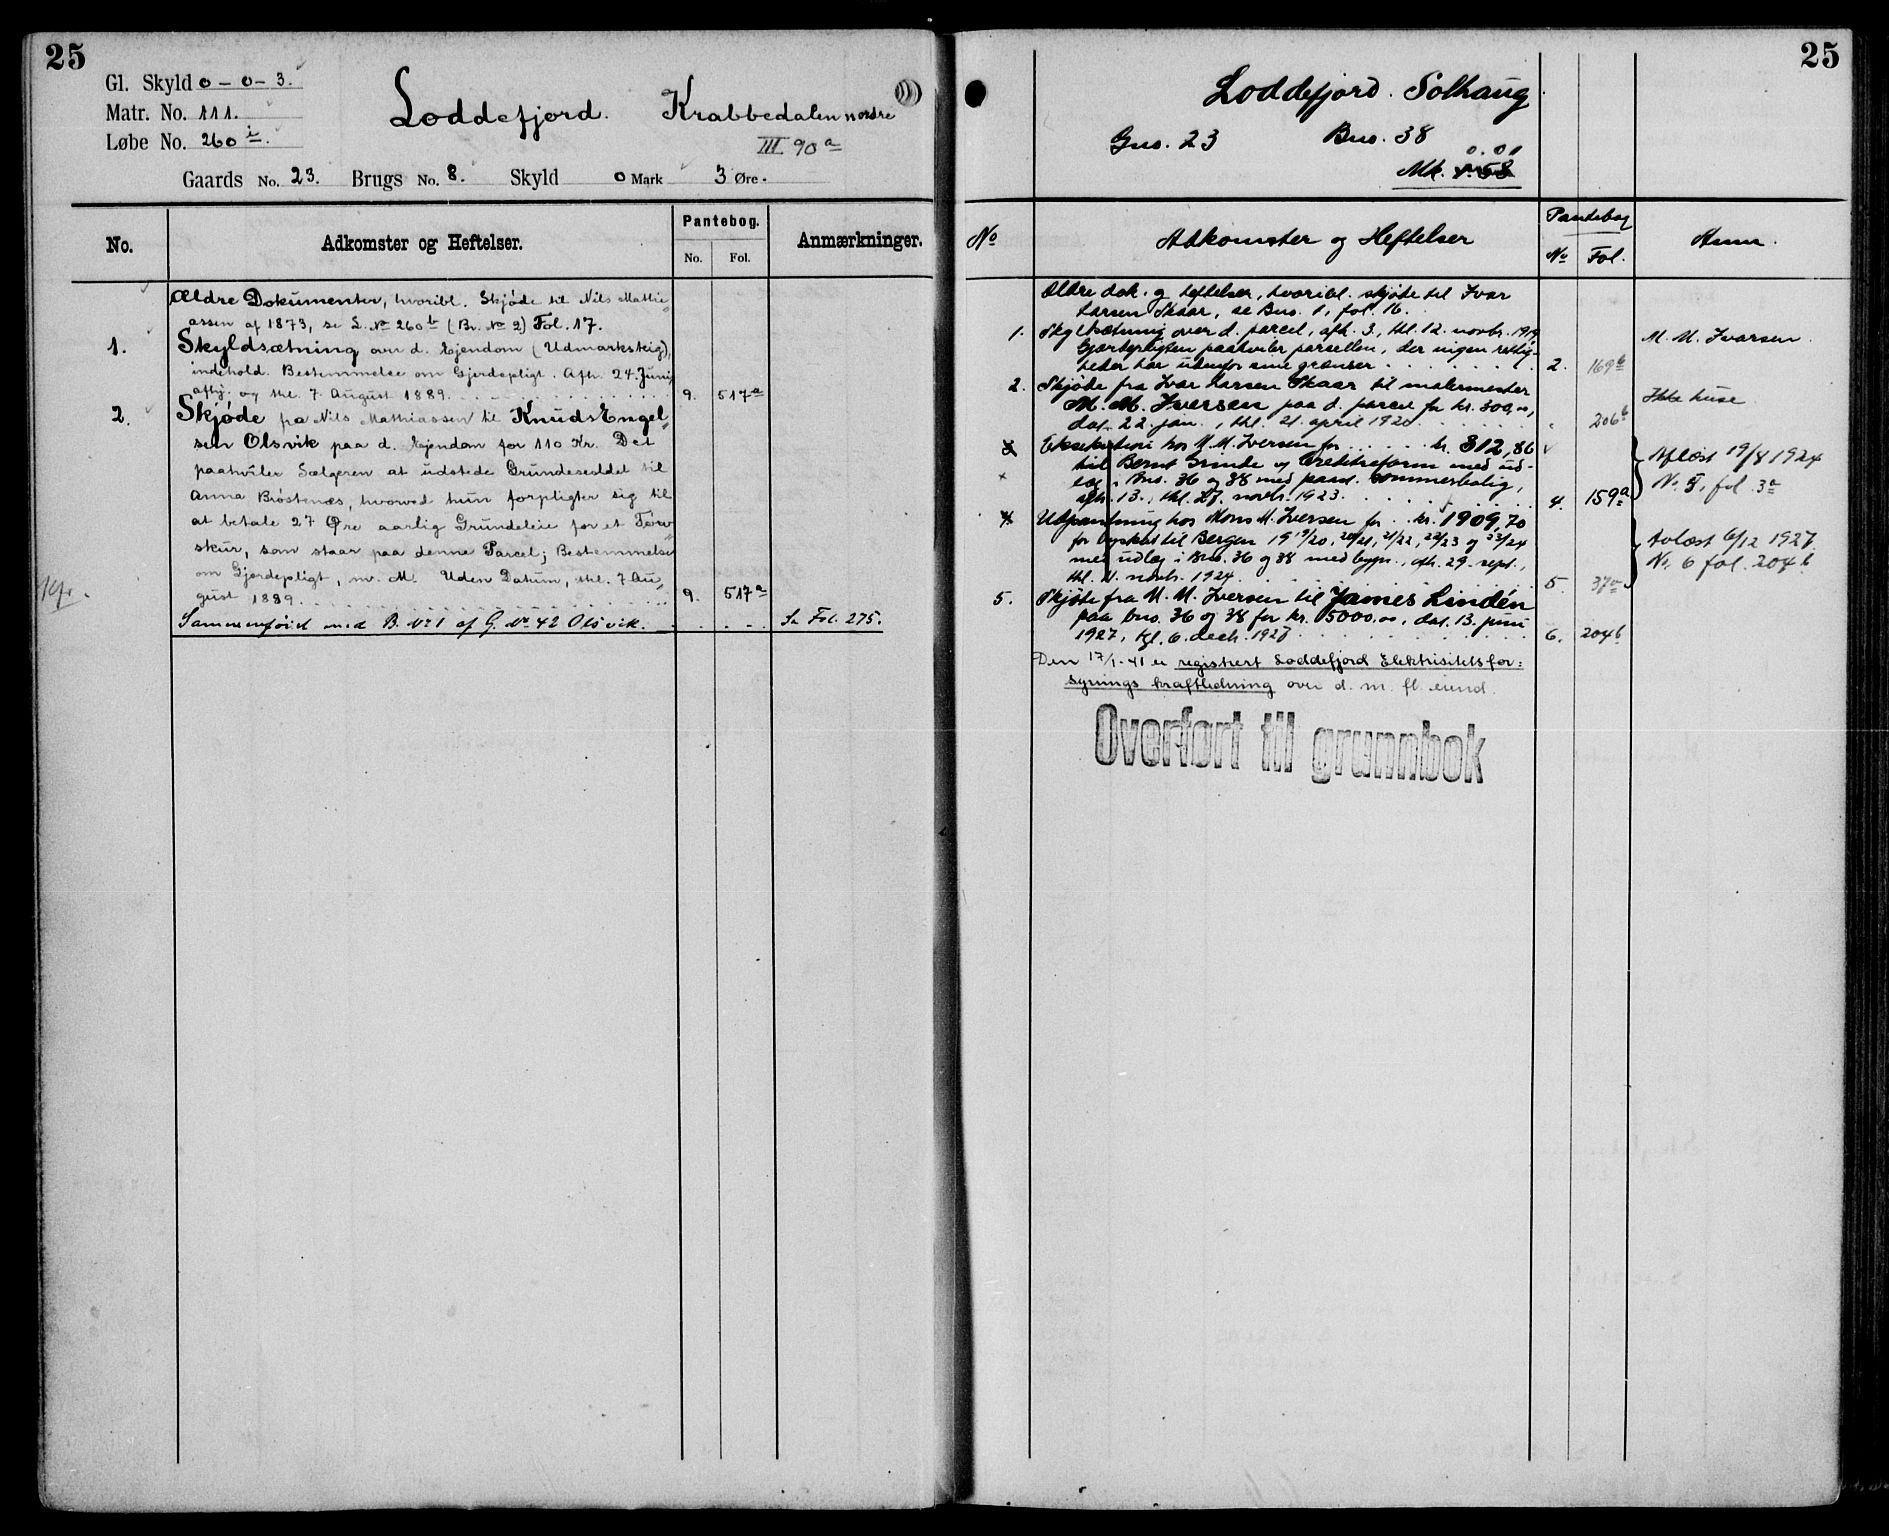 25
Gl. Skyld 0 - 0 - 3.
Matr. No. 111.
Løbe No. 260 i.
Loddefjord. Krabbedalen nordre
III 90 a
Gaards No. 23. Brugs No. 8. Skyld 0 Mark 3 Øre.
No. Adkomster og Heftelser. Pantebog. No. Fol. Anmærkninger.
Ældre Dokumenter, hvoribl. Skjøde til Nils Mathi-
assen af 1873, se L. No 260 b (Br. No 2) Fol. 17.
1. Skyldsætning over d. Ejendom (Udmarksteig),
indehold. Bestemmelse om Gjerdepligt. Afh. 24 Juni,
afhj. og thl. 7 August 1889. 9. 517 a
2. Skjøde fra Nils Mathiassen til Knud Engel-
sen Olsvik paa d. Ejendom for 110 Kr. Det
paahviler Sælgeren at udstede Grundeseddel til
Anna Brøstenes, hvorved hun forpligter sig til
at betale 27 Øre aarlig Grundeleie for et Torv-
skur, som staar paa denne Parcel; Bestemmelse
om Gjerdepligt, m. M. Uden Datum, thl. 7 Au-
gust 1889. 9. 517 a
Sammenføiet med B. No 1 af G. No 42 Olsvik. Se Fol. 275.
25
Loddefjord. Solhaug
Gno. 23 Bno. 38
0.01
Mk.
No Adkomster og Heftelser Pantebog No Fol. Anm.
Ældre dok. og heftelser, hvoribl. skjøte til Ivar
Larsen Skaar, se Bno. 1, fol. 16.
1. Skyldsætning over d. parcel, afh. 3, thl. 12. novbr. 1919
Gjærdepligten paahviler parsellen, der ingen rettig-
heter har utenfor sine grænser 2. 169 b M. M. Ivarsen.
2. Skjøde fra Ivar Larsen Skaar til malermester
M. M. Iversen paa d. parcel for kr. 300,00,
dat. 22. jan., thl. 21. april 1920 " 206 b Ikke huse
3 Eksekution hos M. M. Iversen for kr. 812,86
til Bernt Grinde og Creditreform med ud-
læg i Bno. 36 og 38 med paast. sommerbolig,
afh. 13., thl. 27. novbr. 1923. 4. 159 a
Aflæst 19/8 1924
No. 5, fol. 3 a
4 Utpantning hos Mons M. Iversen for kr. 1909,70
for byskat til Bergen 19 19/20, 20/21, 21/22, 22/23 og 23/24
med utlæg i Bno. 36 og 38 med bygn., afh. 29. sept.,
thl. 11. novbr. 1924. 5. 37 a
Avlæst 6/12 1927
No. 6 fol. 204 b
5. Skjøte fra M. M. Iversen til James Lindén
paa bno. 36 og 38 for kr. 15000,00, dat. 13. juni
1927, tgl. 6. decb. 1927 6. 204 b
Den 17/1-41 er registrert Loddefjord Elektrisitetsfor-
synings kraftledning over d. m. fl. eiend.
Overført til grunnbok